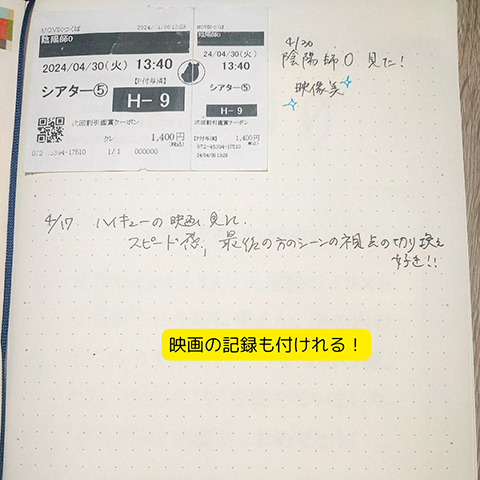 MOVIXつくば
陰陽師0
2024/04/30(火) 13:40
【P付与済】
シアター⑤
H-9
次回割引鑑賞クーポン
クレ 1,400円
(税込)
072-45394-17510 1/1 000000
MOVIXつくば
陰陽師0
24/04/30(火)
13:40
シアター⑤
H-9
次回割引鑑賞クーポン
1,400円
【P付与済】 (税込)
072-45394-17510
24/04/30 13:09
4/30
陰陽師0 見た!
映像美
4/17 ハイキューの映画見た。
スピード感、最後の方のシーンの視点の切り換え
好き!!
映画の記録も付けれる！